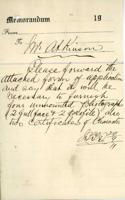 Memorandum 19
From
To Mr. Atkinson
Please forward the
attached form of application
and say that it will be
necessary to furnish
four unmounted photographs
(2 full face & 2 profile) also
two Certificates of Character